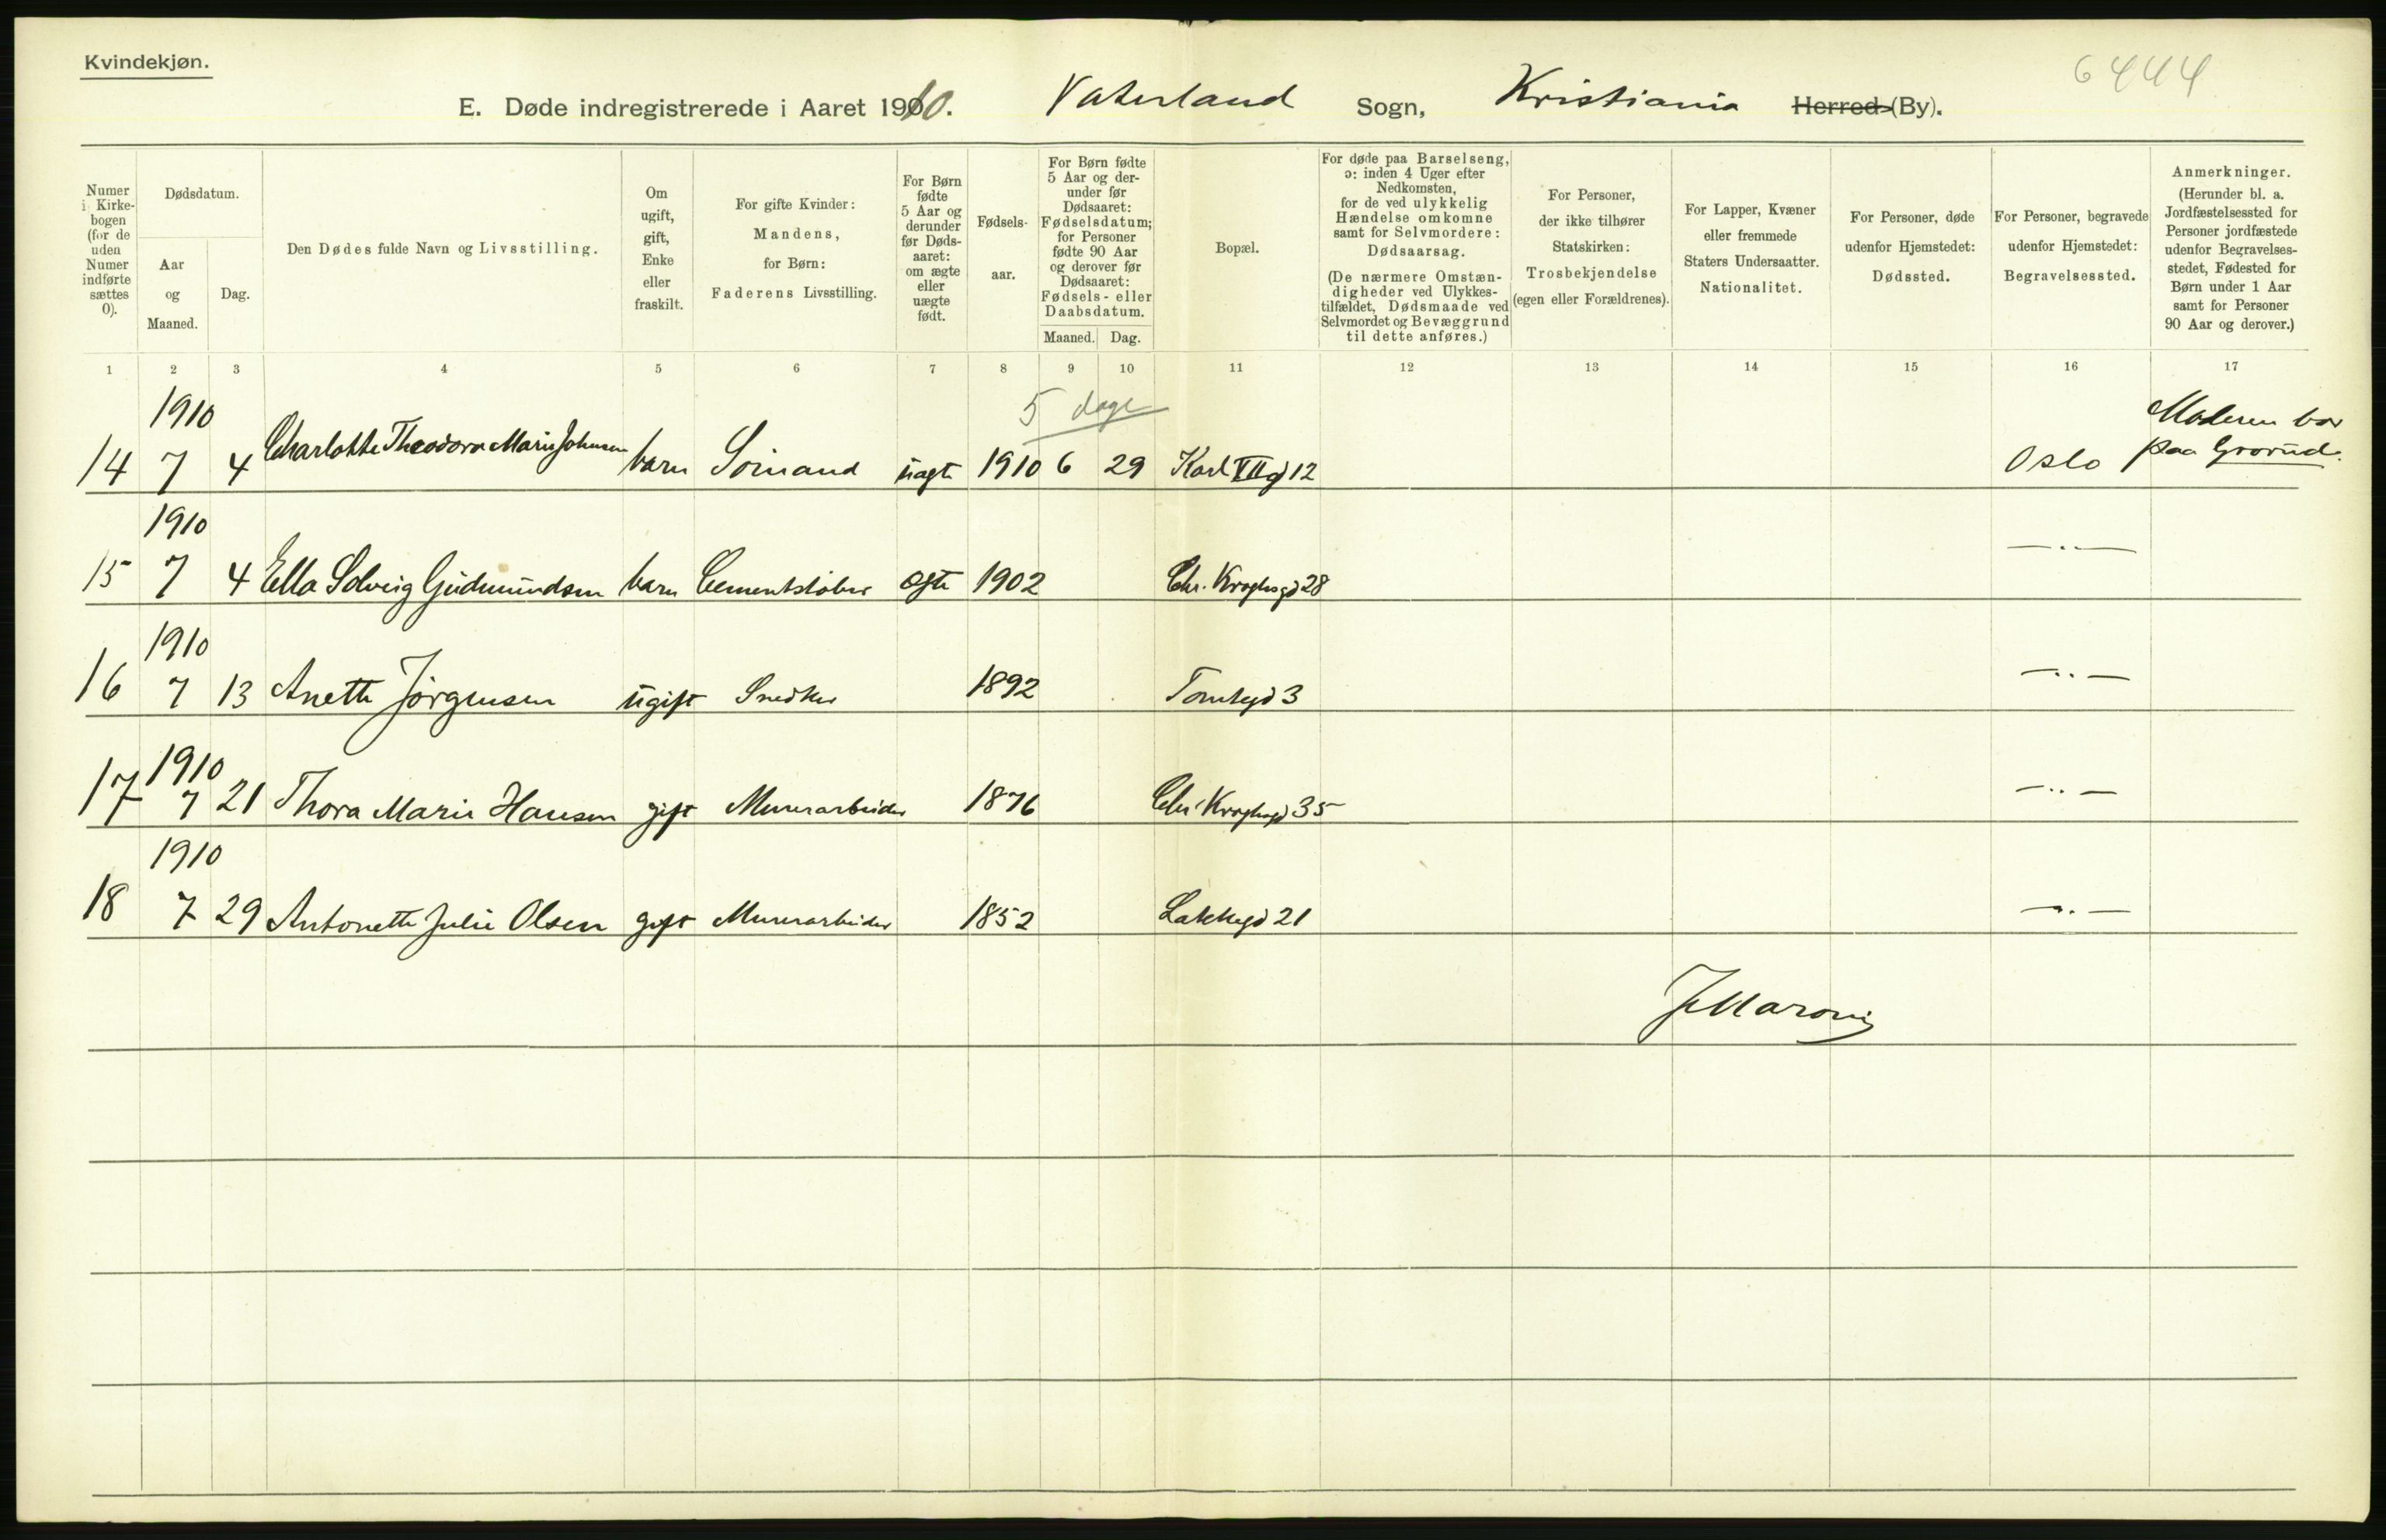 Kvindekjøn.
6444
E. Døde indregistrerede i Aaret 1910. Vaterland Sogn, Kristiania Herred (By).
Numer i Kirkebogen (for de uden Numer indførte sættes 0).
Dødsdatum.
Aar og Maaned.
Dag.
Den Dødes fulde Navn og Livsstilling.
Om ugift, gift, Enke eller fraskilt.
For gifte Kvinder: Mandens, for Børn: Faderens Livsstilling.
For Børn fødte 5 Aar og derunder før Dødsaaret: om ægte eller uægte født.
Fødselsaar.
For Børn fødte 5 Aar og derunder før Dødsaaret: Fødselsdatum; for Personer fødte 90 Aar og derover før Dødsaaret: Fødsels- eller Daabsdatum.
Maaned. Dag.
Bopæl.
For døde paa Barselseng, ɔ: inden 4 Uger efter Nedkomsten, for de ved ulykkelig Hændelse omkomne samt for Selvmordere: Dødsaarsag.
(De nærmere Omstændigheder ved Ulykkestilfældet, Dødsmaade ved Selvmordet og Bevæggrund til dette anføres.)
For Personer, der ikke tilhører Statskirken: Trosbekjendelse (egen eller Forældrenes).
For Lapper, Kvæner eller fremmede Staters Undersaatter. Nationalitet.
For Personer, døde udenfor Hjemstedet: Dødssted.
For Personer, begravede udenfor Hjemstedet: Begravelsessted.
Anmerkninger.
(Herunder bl. a. Jordfæstelsessted for Personer jordfæstede udenfor Begravelsesstedet, Fødested for Børn under 1 Aar samt for Personer 90 Aar og derover.)
1 2 3 4 5 6 7 8 9 10 11 12 13 14 15 16 17
1910 5 dage Moderen bor
14 7 4 Charlotte Theodora Marie Johnsen barn Sømand uægte 1910 6 29 Karl XIIgd 12 Oslo paa Grorud.
1910
15 7 4 Ella Solveig Gudmundsen barn Cementstøber ægte 1902 Chr. Kroghsgd 28 —〃—
1910
16 7 13 Anette Jørgensen ugift Snedker 1892 Tomtegd 3 —〃—
1910
17 7 21 Thora Marie Hansen gift Murerarbeider 1876 Chr. Kroghsgd 35 —〃—
1910
18 7 29 Antonette Julie Olsen gift Murerarbeider 1852 Lakkegd 21 —〃—
J Maroni